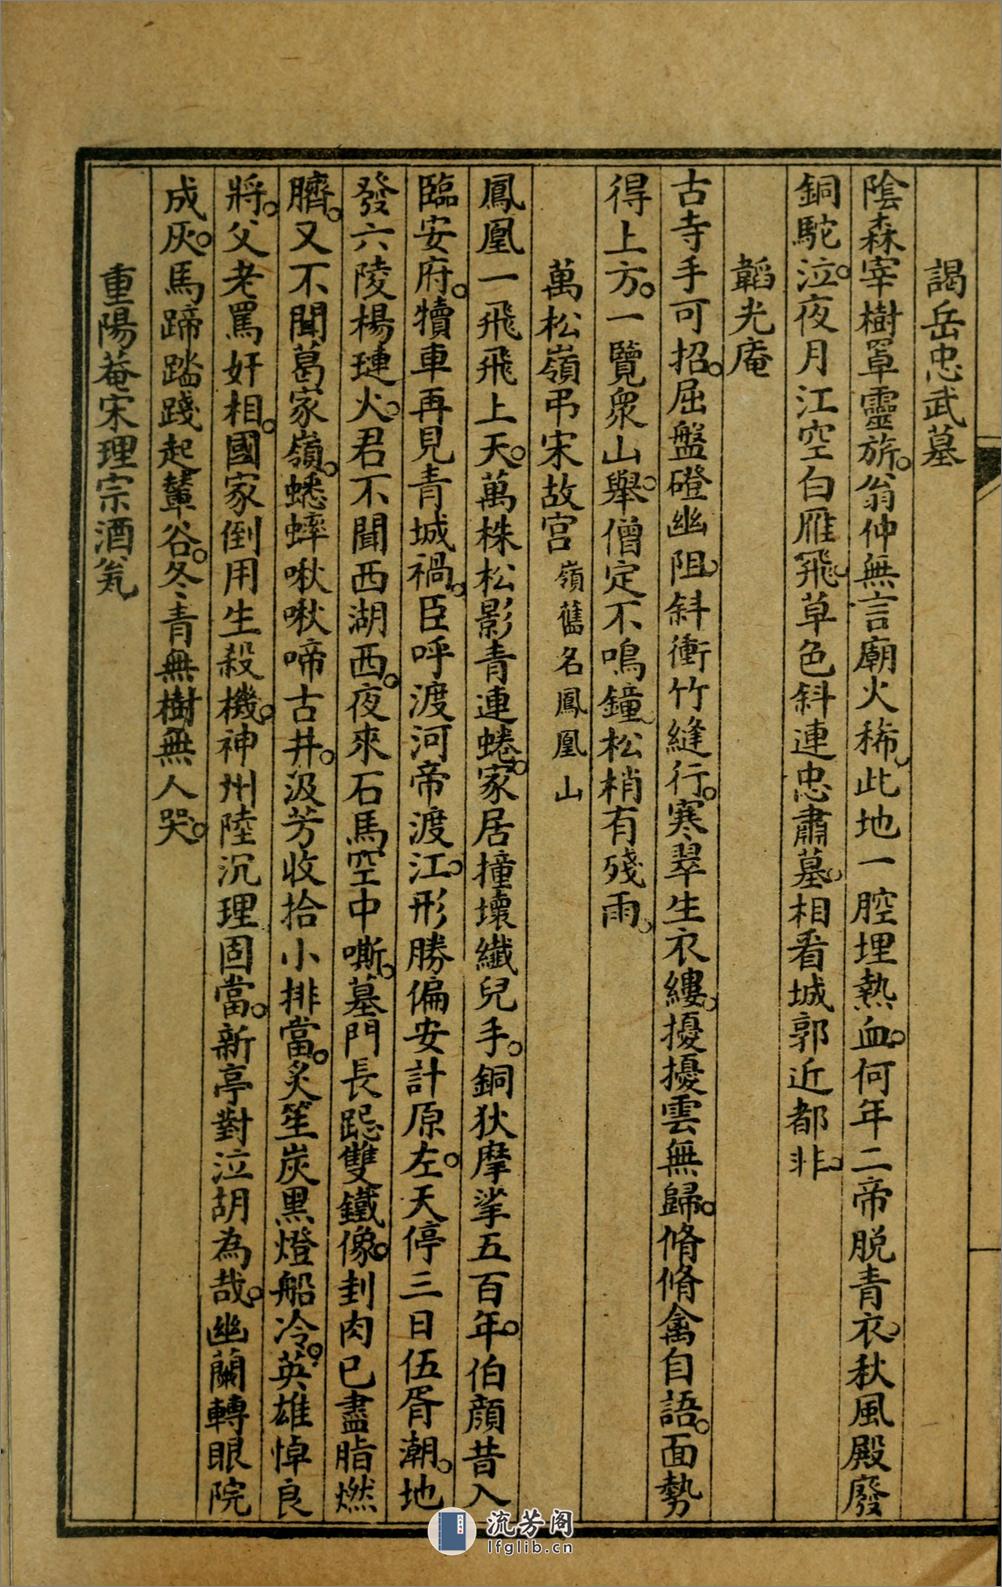 謁岳忠武墓
陰森宰樹罩靈旂。翁仲無言廟火稀。此地一腔埋熱血。何年二帝脱青衣。秋風殿廢
銅駝泣。夜月江空白雁飛。草色斜連忠肅墓。相看城郭近都非。
韜光庵
古寺手可招。屈盤磴幽阻。斜衝竹縫行。寒翠生衣縷。擾擾雲無歸。翛翛禽自語。面勢
得上方。一覽衆山舉。僧定不鳴鐘。松梢有殘雨。
萬松嶺弔宋故宫 嶺舊名鳳凰山
鳳凰一飛飛上天。萬株松影青連蜷。家居撞壞纖兒手。銅狄摩挲五百年。伯顔昔入
臨安府。犢車再見青城禍。臣呼渡河帝渡江。形勝偏安計原左。天停三日伍胥潮。地
發六陵楊璉火。君不聞西湖西。夜來石馬空中嘶。墓門長跽雙鐵像。刲肉已盡脂燃
臍。又不聞葛家嶺。蟋蟀啾啾啼古井。汲芳收拾小排當。炙笙炭黑燈船冷。英雄悼良
將。父老罵奸相。國家倒用生殺機。神州陸沉理固當。新亭對泣胡為哉。幽蘭轉眼院
成灰。馬蹄踏踐起輦谷。冬青無樹無人哭。
重陽菴宋理宗酒氣
流芳阁
lfglib.cn